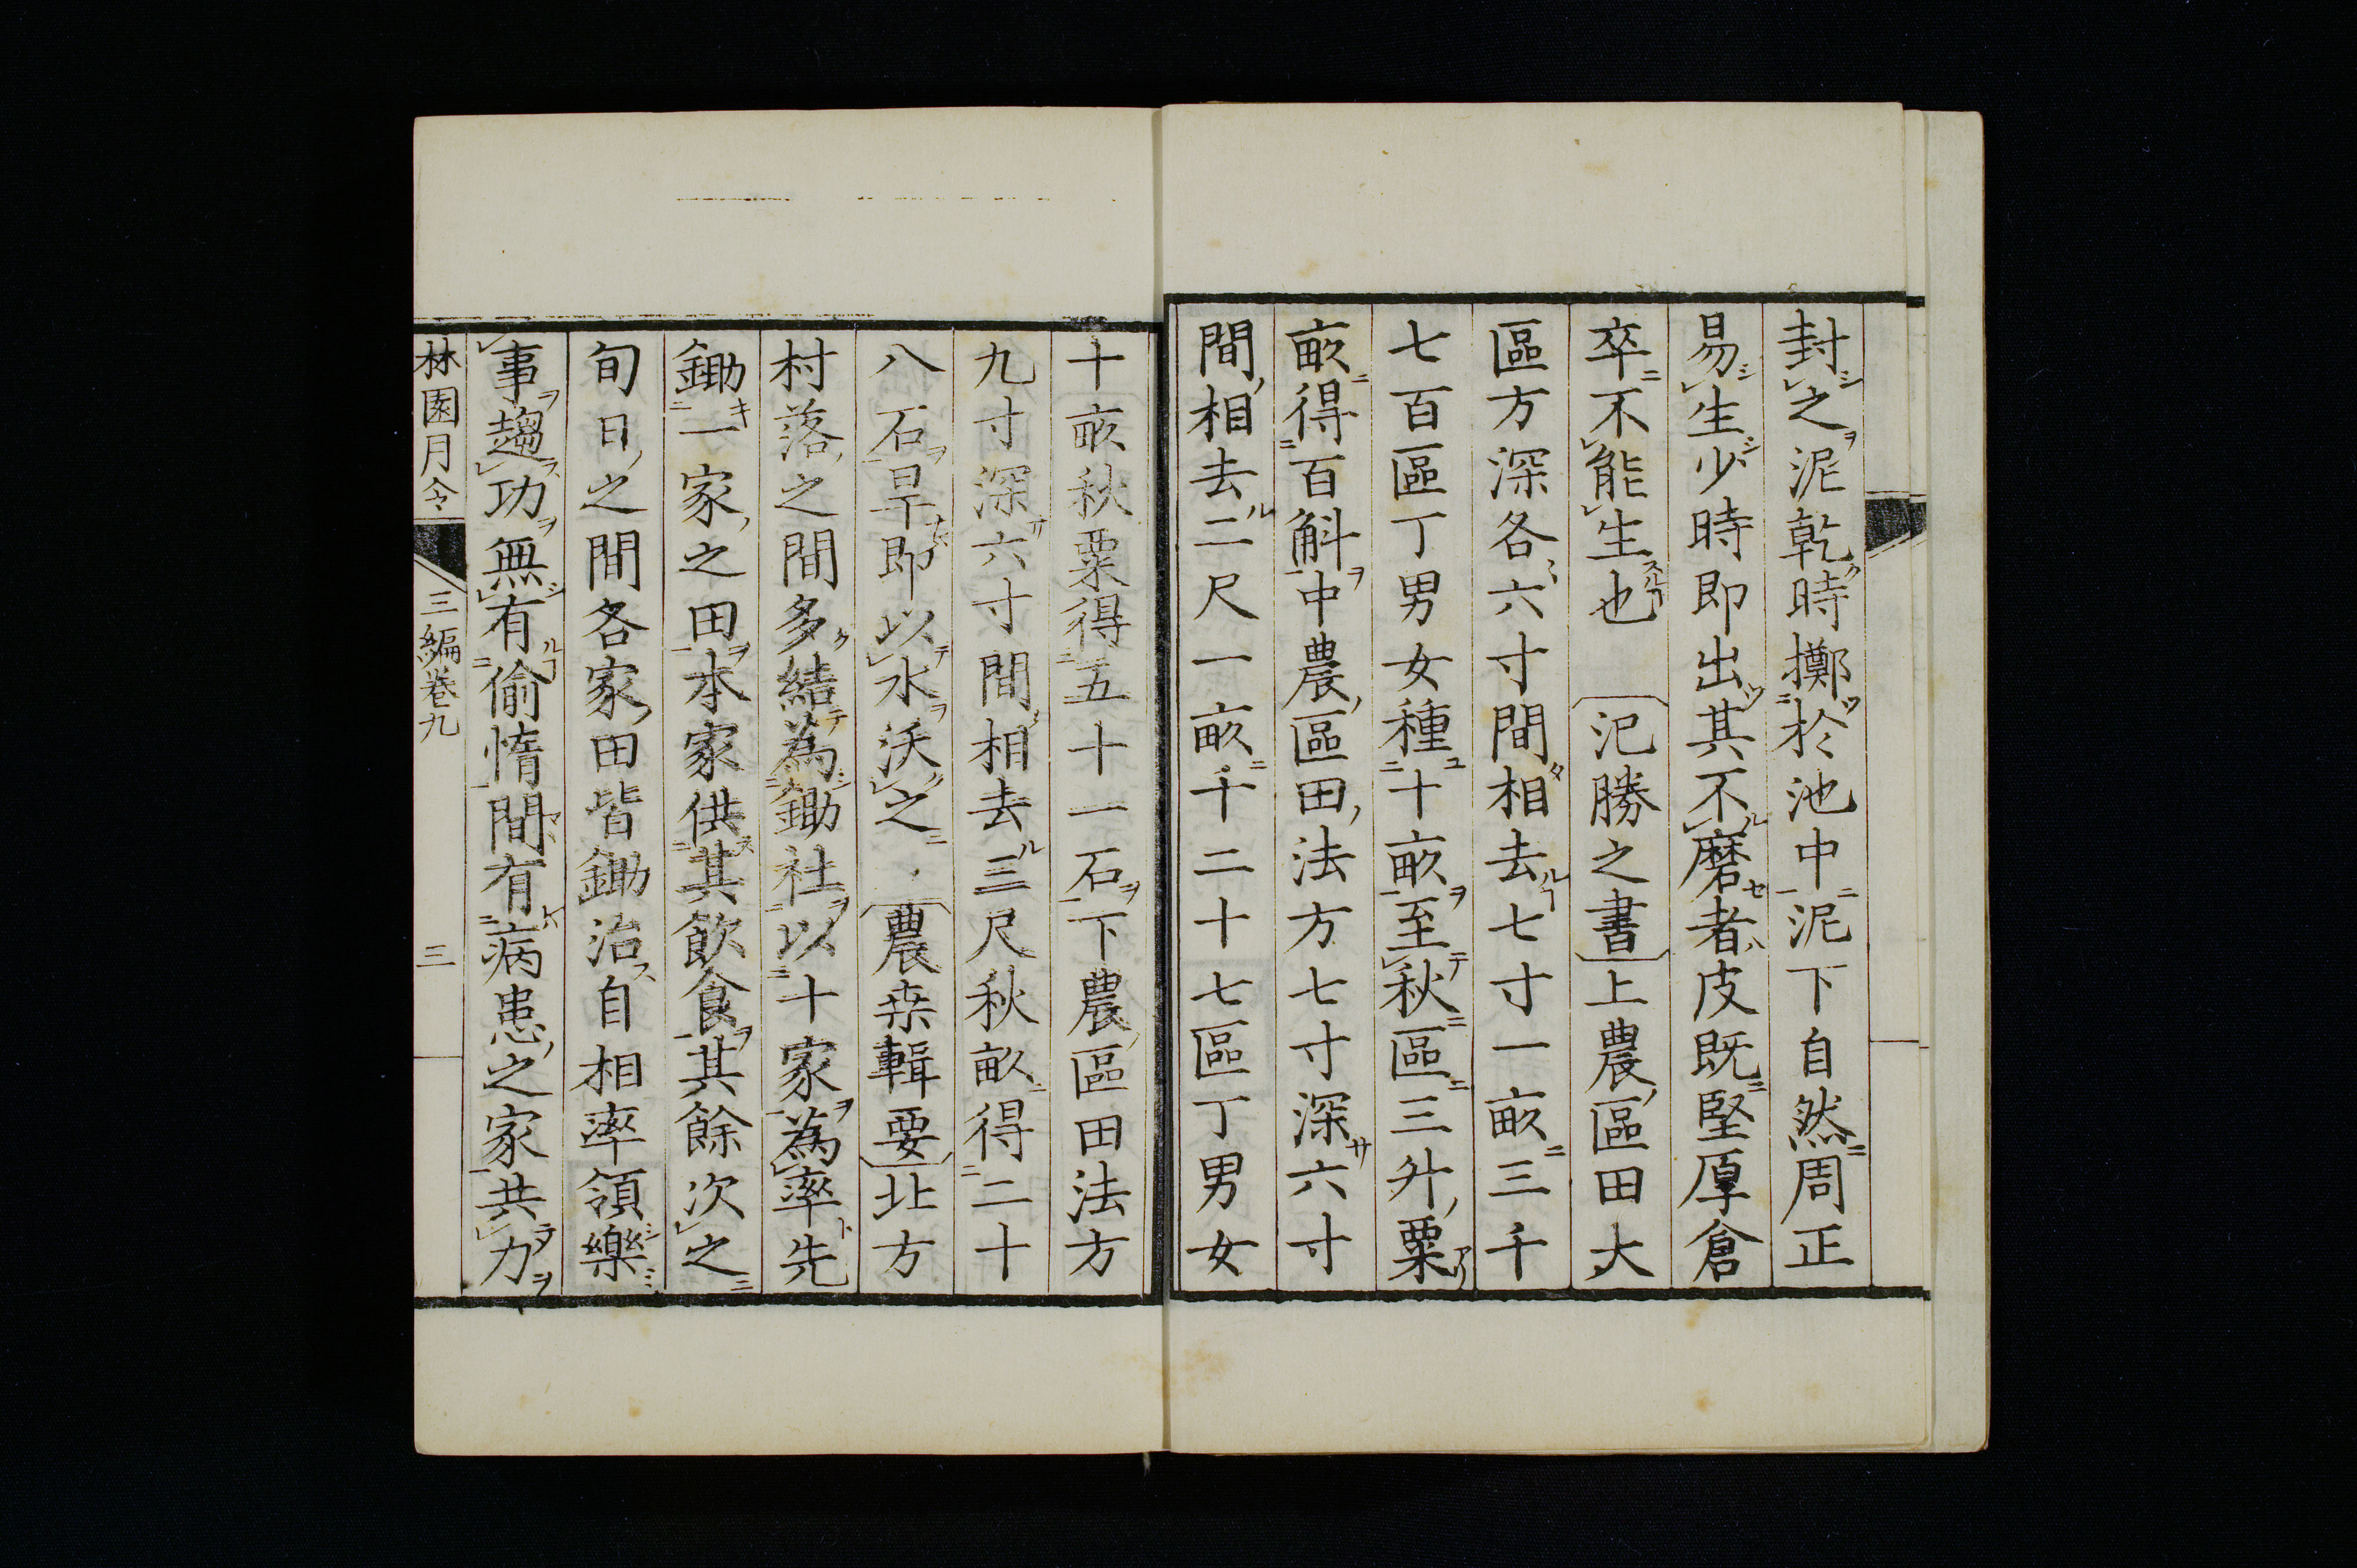 封之泥乾時擲於池中泥下自然周正
易生少時即出其不磨者皮既堅厚倉
卒不能生也 〔氾勝之書〕上農區田大
區方深各六寸間相去七寸一畝三千
七百區丁男女種十畝至秋區三升粟
畝得百斛中農區田法方七寸深六寸
間相去二尺一畝千二十七區丁男女
十畝秋粟得五十一石下農區田法方
九寸深六寸間相去三尺秋畝得二十
八石旱即以水沃之 〔農桒輯要〕北方
村落之間多結為鋤社以十家為率先
鋤一家之田本家供其飲食其餘次之
旬日之間各家田皆鋤治自相率領樂
事趨功無有偷惰間有病患之家共力
林園月令 三編卷九 三